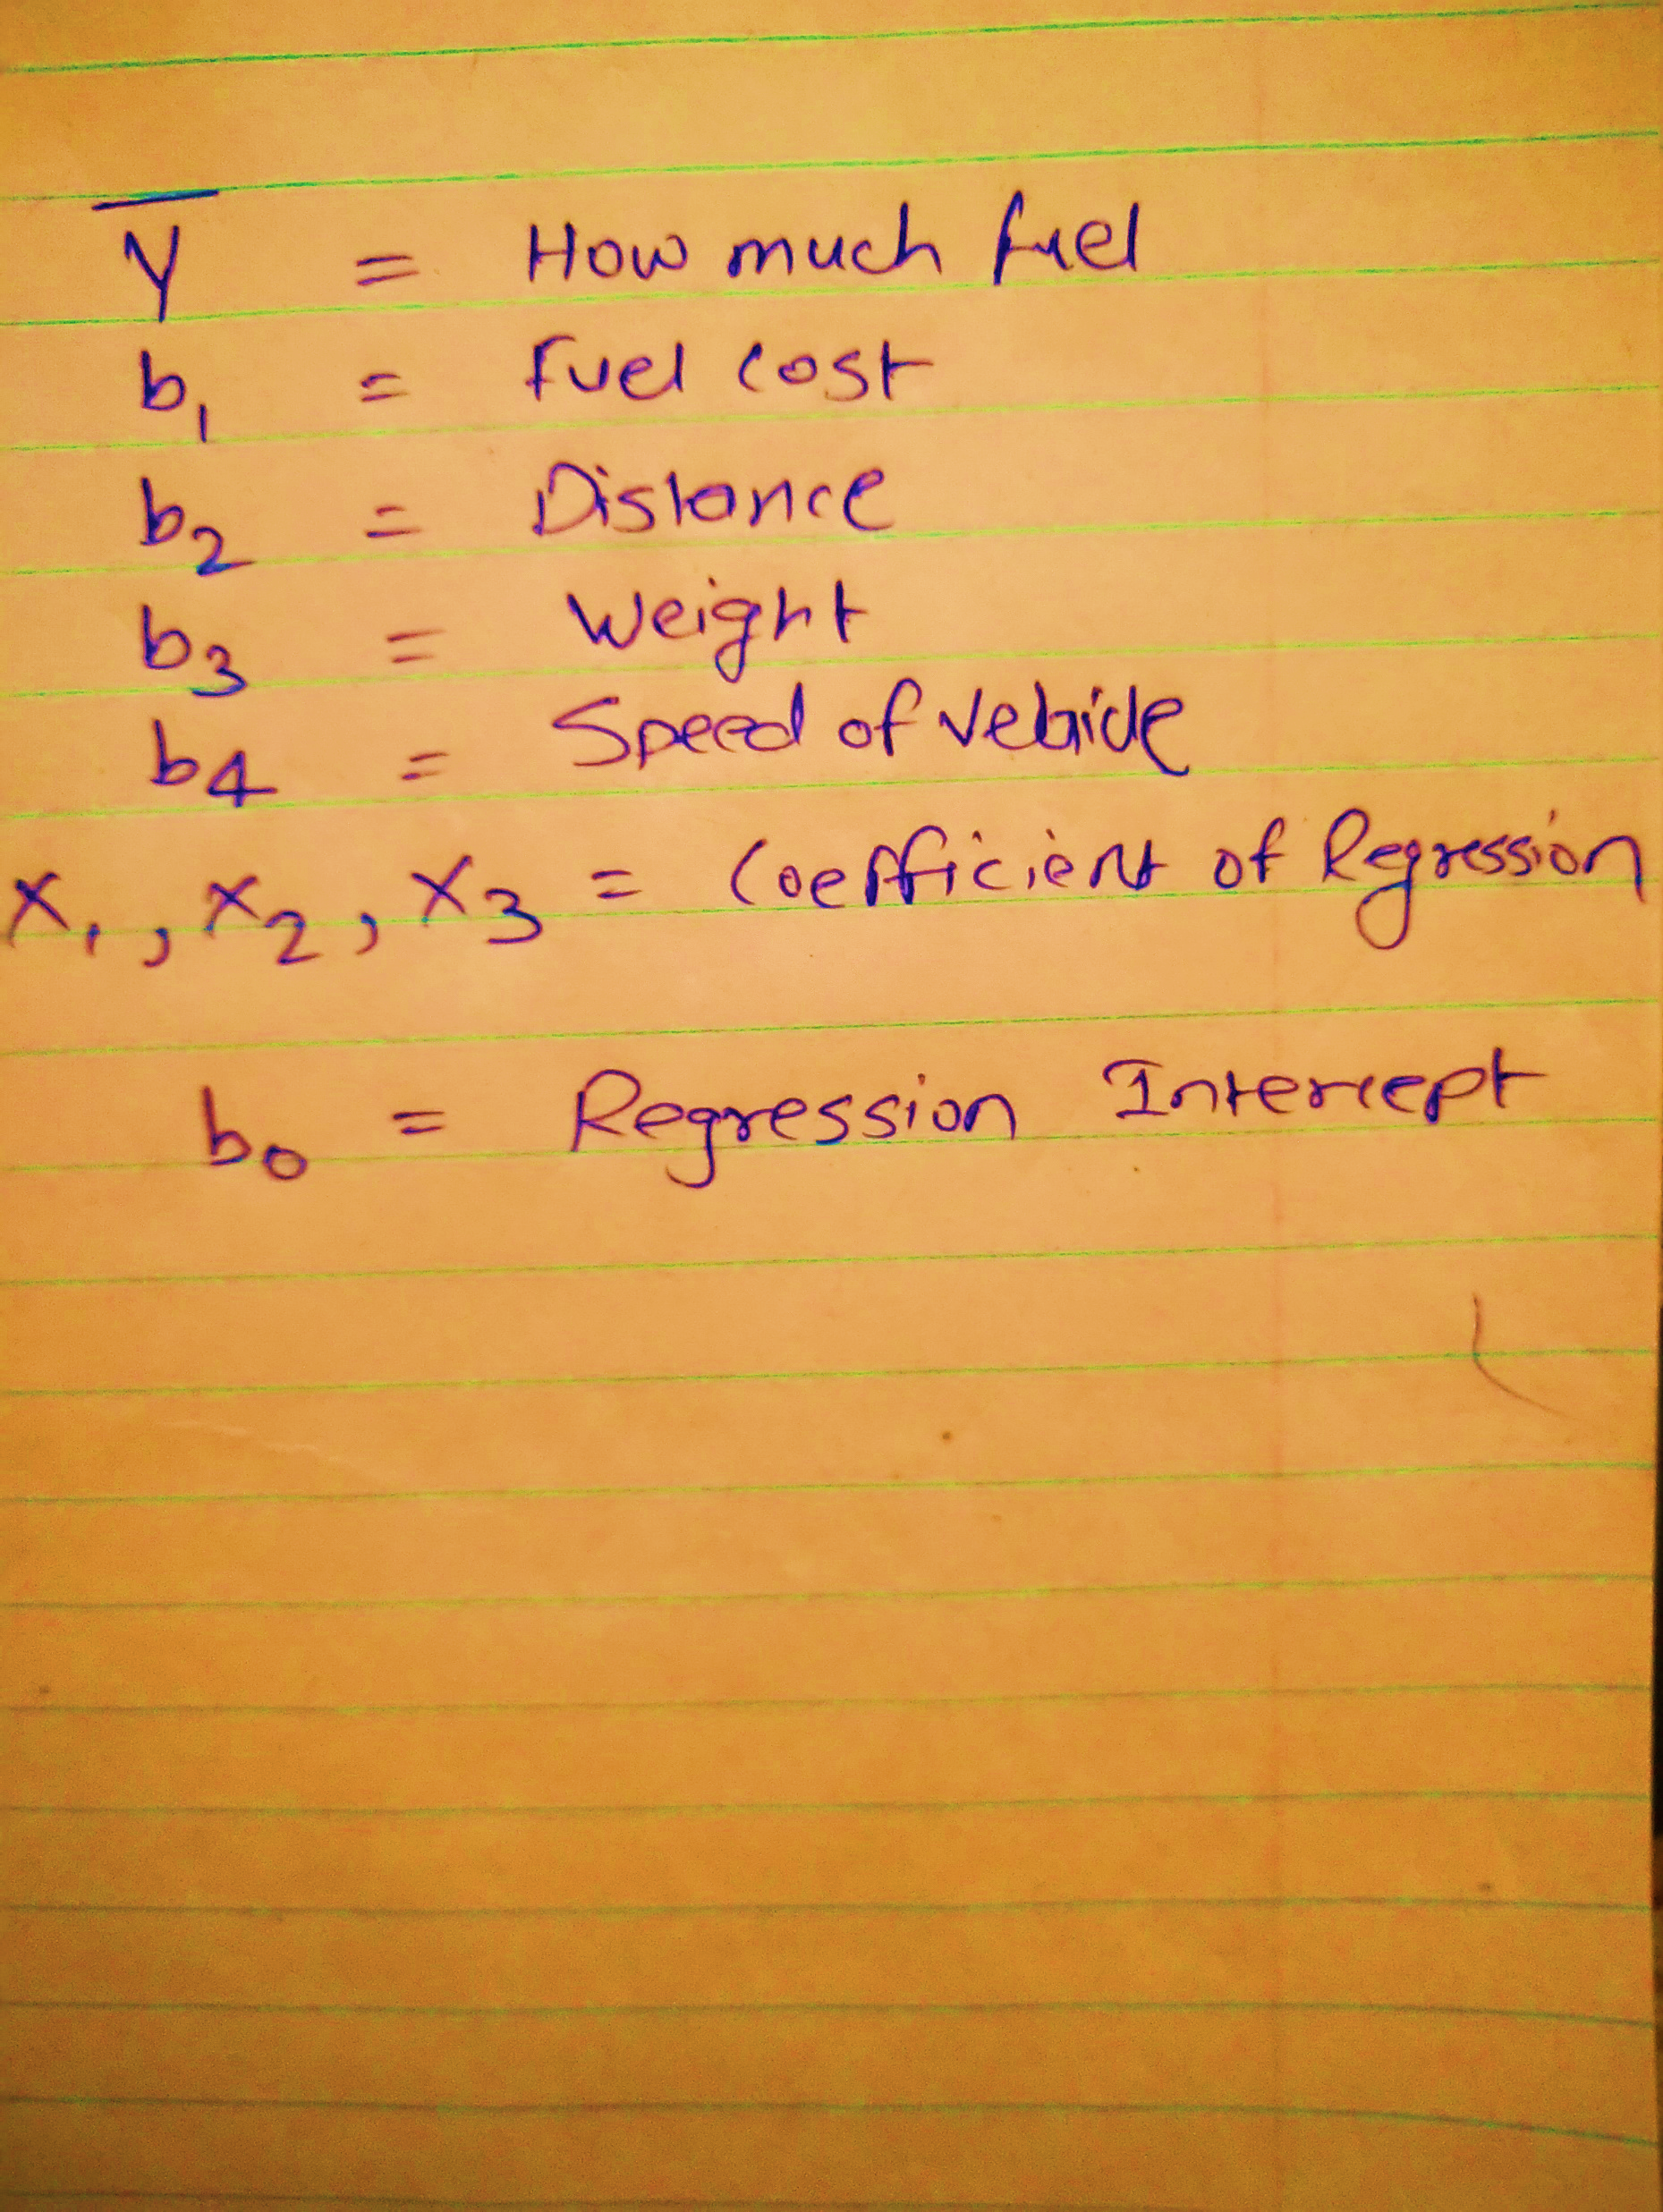 Y̅ = How much fuel
b₁ = Fuel cost
b₂ = Distance
b₃ = Weight
b₄ = Speed of vehicle
X₁, X₂, X₃ = Coefficient of Regression
b₀ = Regression Intercept